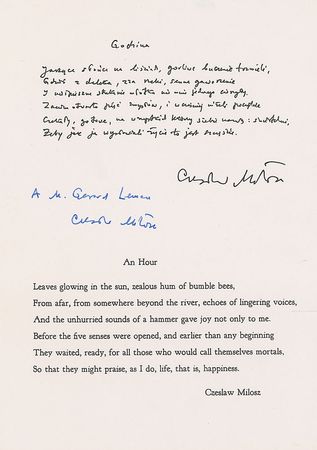 Godzina
Jarzące słońce na liściach, gorliwe buczenie trzmieli,
Gdzieś z daleka, zza rzeki, senne gaworzenie
I niespieszne stukanie młotka nie mnie jednego
Zanim otwarto pięć zmysłów, i wcześniej niż początek
Czekały, gotowe, na wszystkich którzy siebie nazwą: śmiertelni,
Żeby jak ja wysławiali życie to jest szczęście.
Czesław Miłosz
A M. Gerard
Czesław Miłosz
An Hour
Leaves glowing in the sun, zealous hum of bumble bees,
From afar, from somewhere beyond the river, echoes of lingering voices,
And the unhurried sounds of a hammer gave joy not only to me.
Before the five senses were opened, and earlier than any beginning
They waited, ready, for all those who would call themselves mortals,
So that they might praise, as I do, life, that is, happiness.
Czeslaw Milosz